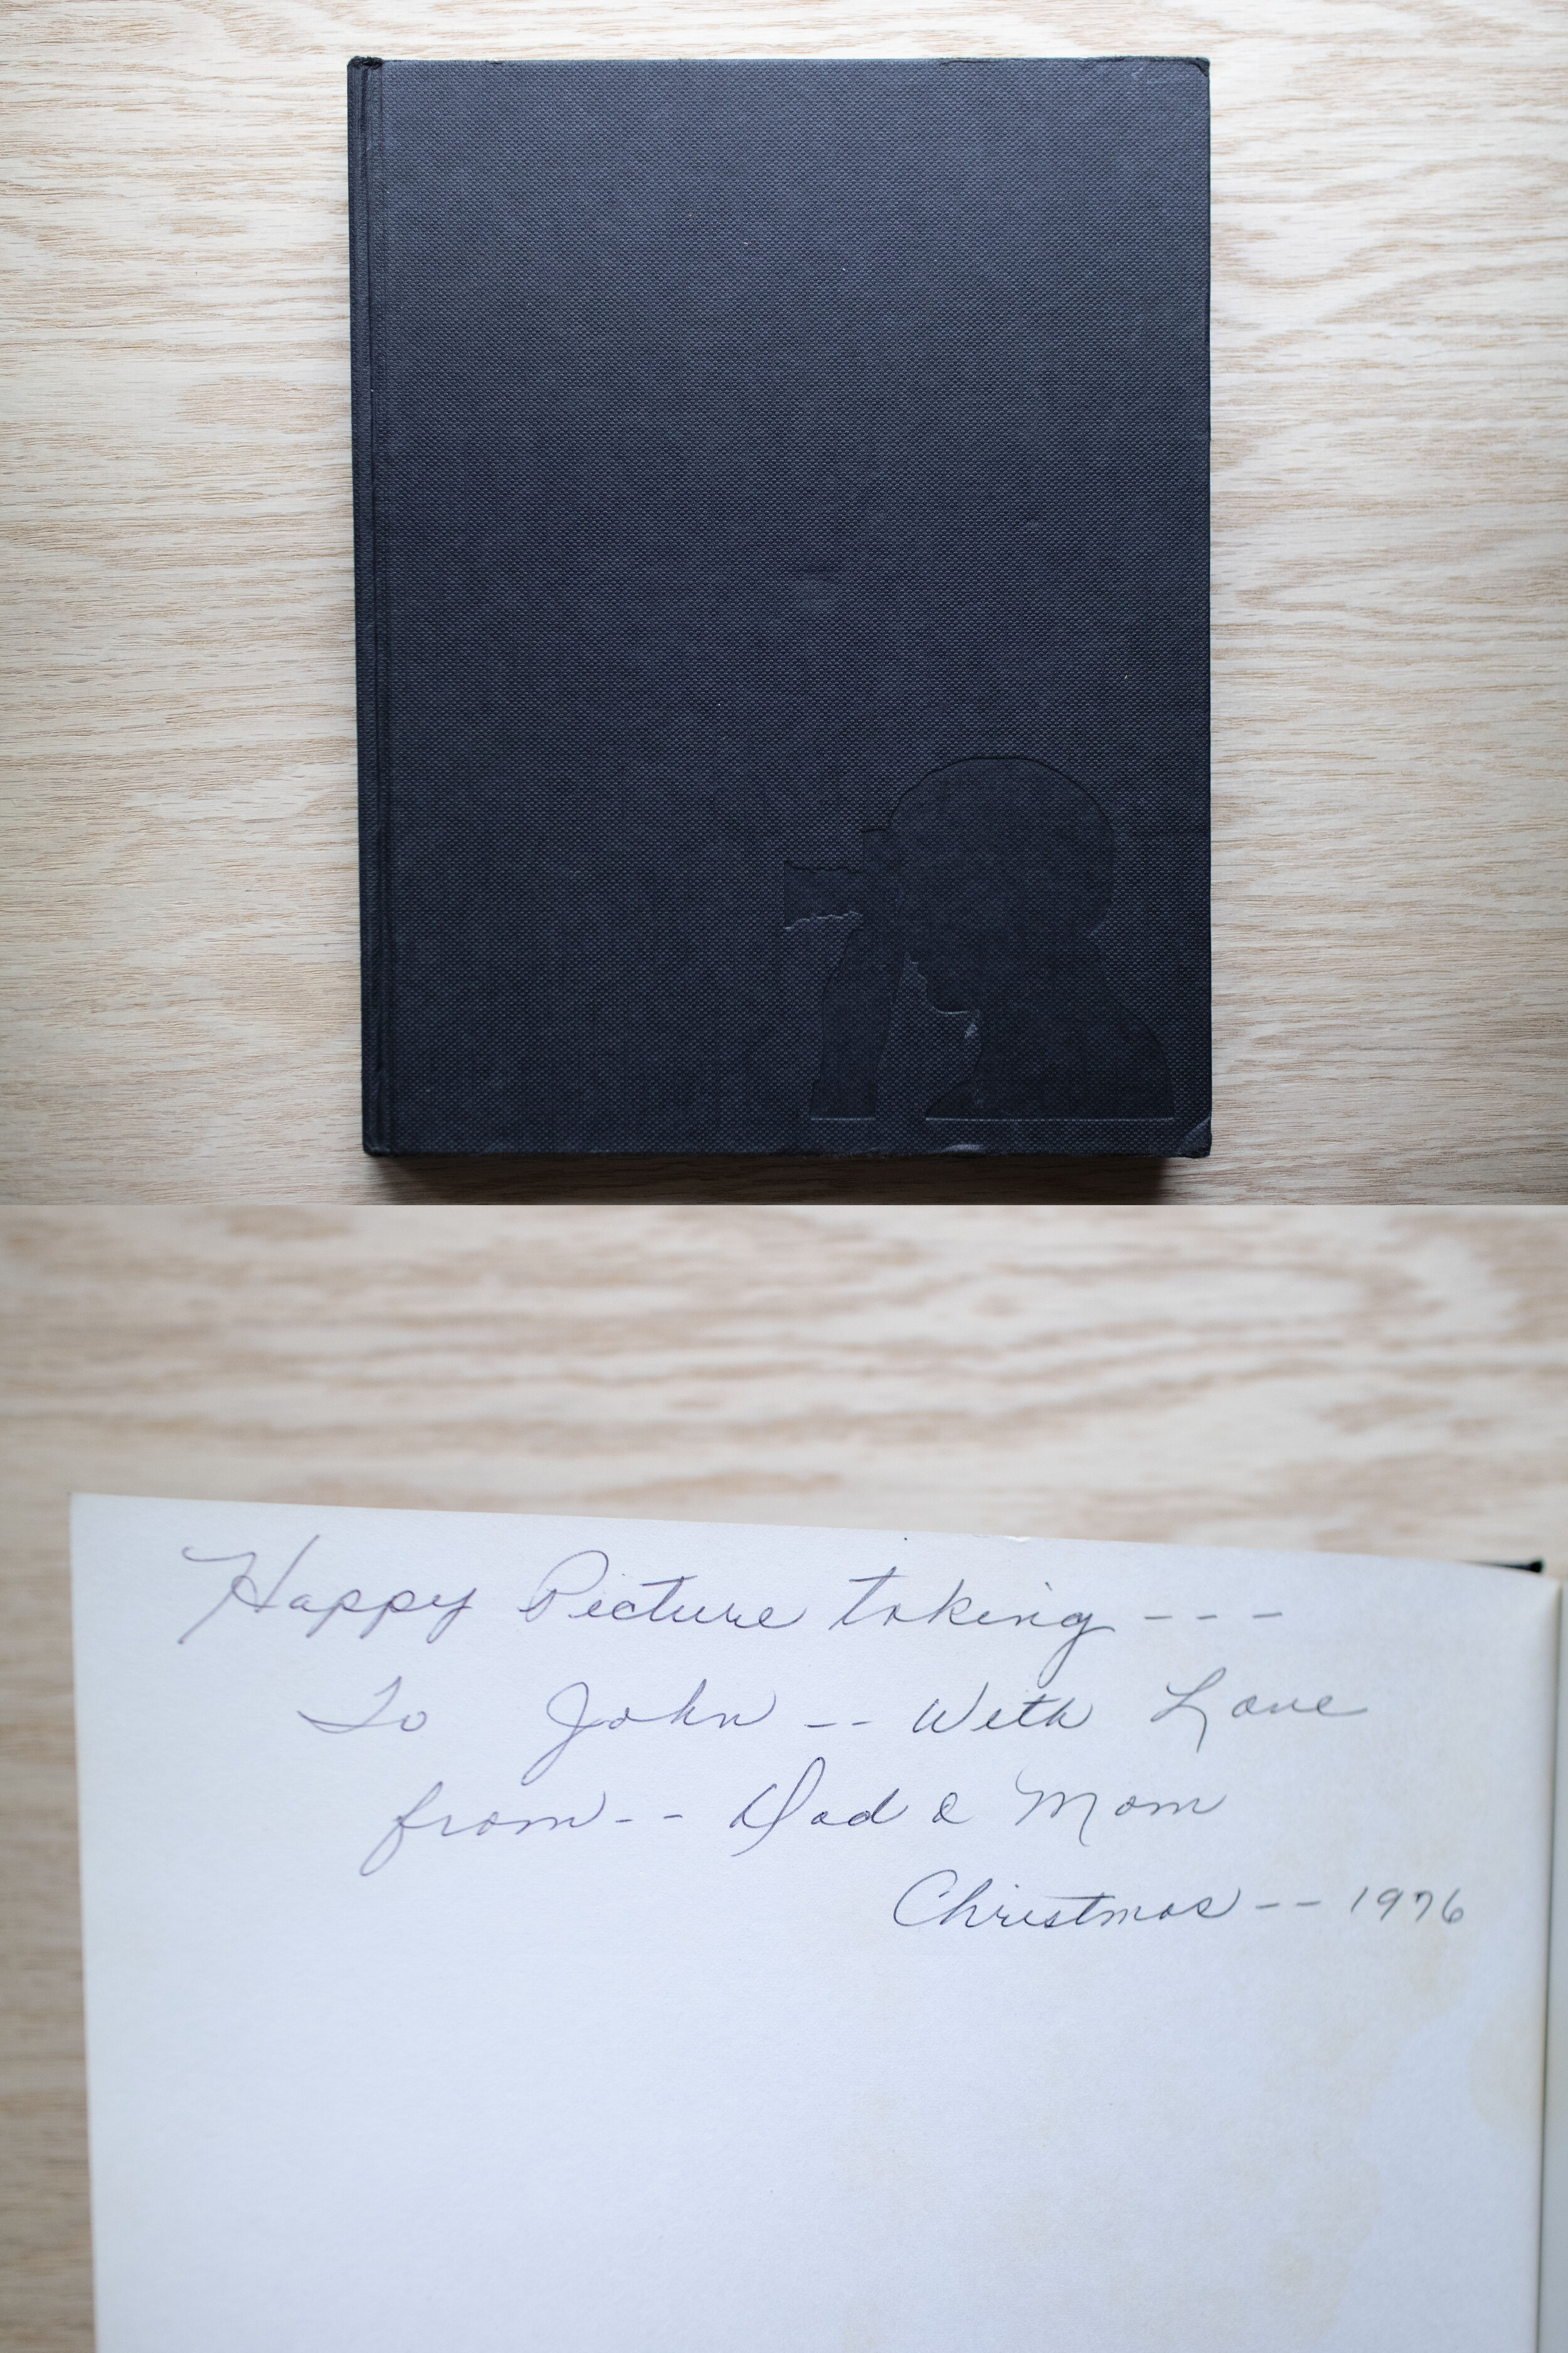 Happy Picture taking - - -
To John -- With Love
from -- Dad & Mom
Christmas -- 1976